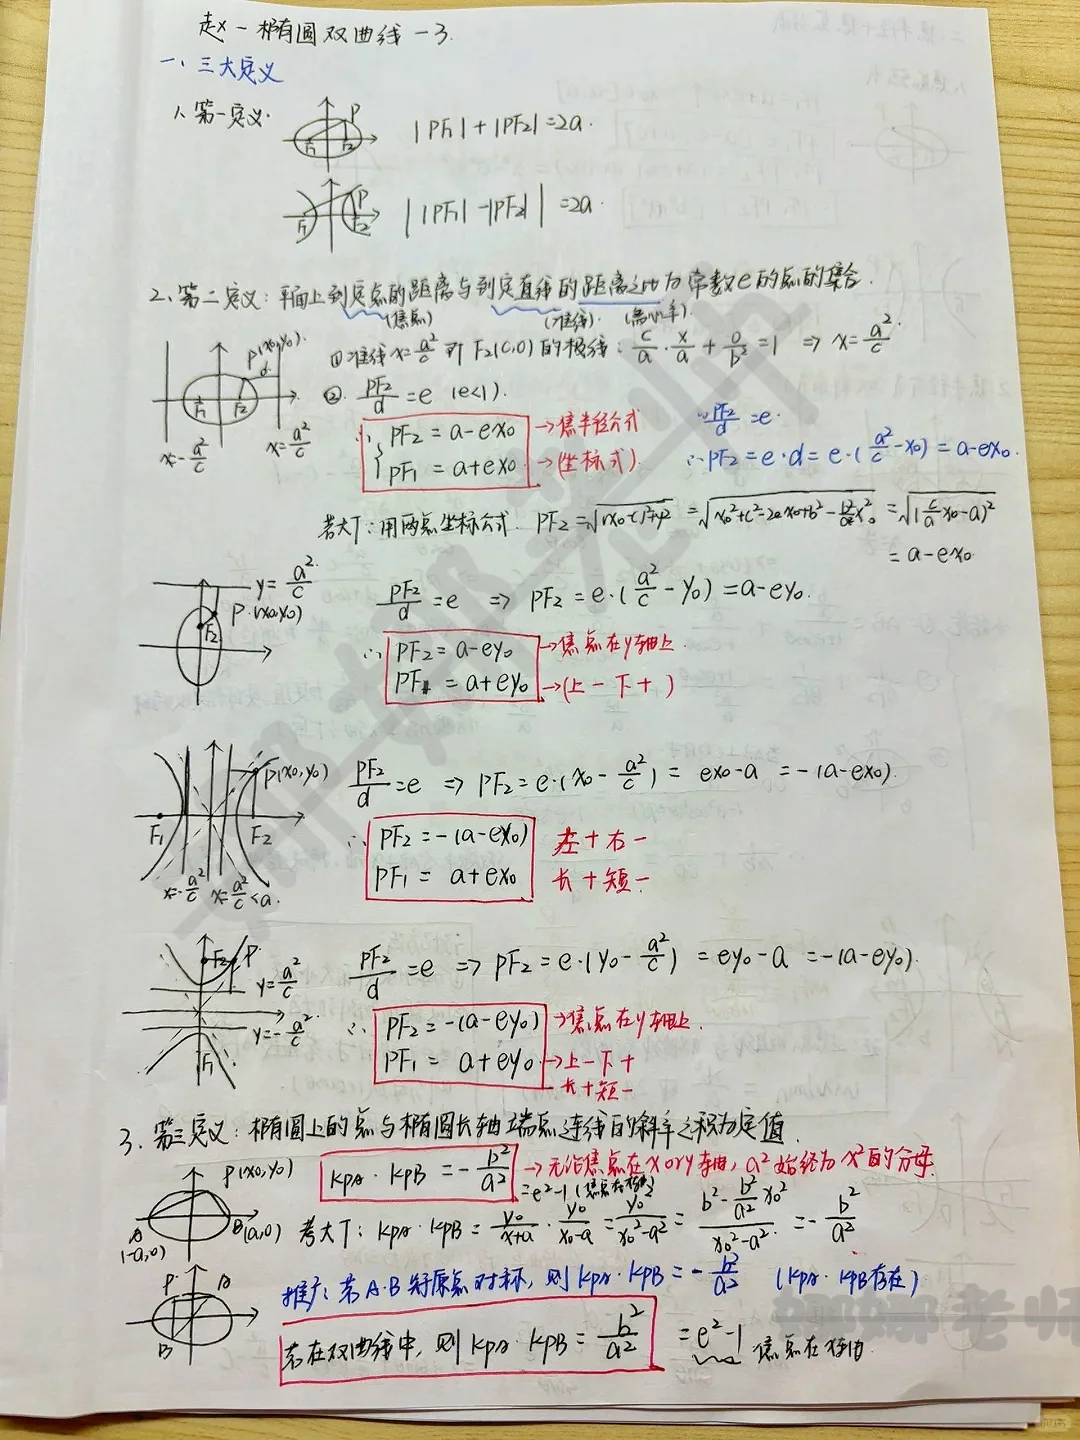 赵x-椭圆双曲线-3.
一、三大定义
1、第一定义.
P
F1 F2
|PF1|+|PF2|=2a.
P
F1 F2
||PF1|-|PF2||=2a.
2、第二定义:平面上到定点的距离与到定直线的距离之比为常数e的点的集合.
(焦点) (准线). (离心率).
P(x0,y0).
d
F1 F2
x=-a²/c x=a²/c
①准线x=a²/c 即F2(c,0)的极线: c/a·x/a+0/b²=1 ⇒ x=a²/c.
②. PF2/d=e (e<1).
∴ { PF2=a-ex0 →焦半径公式
PF1=a+ex0. →(坐标式).
∵PF2/d=e.
∴PF2=e·d=e·(a²/c-x0)=a-ex0.
考大T:用两点坐标公式. PF2=√(x0-c)²+y² =√x0²+c²-2cx0+b²-b²/a²x0² =√(c/a x0-a)²
=a-ex0.
y=a²/c.
P(x0,y0)
F2
PF2/d=e ⇒ PF2=e·(a²/c-y0)=a-ey0.
∴ PF2=a-ey0 →焦点在y轴上
PF1=a+ey0 →(上-下+)
P(x0,y0)
F1 F2
x=-a²/c x=a²/c<a.
PF2/d=e ⇒ PF2=e·(x0-a²/c)= ex0-a =-(a-ex0).
∴ PF2=-(a-ex0) 左+右-
PF1= a+ex0 长+短-
F2 P.
y=a²/c
y=-a²/c.
F1
PF2/d=e ⇒ PF2=e·(y0-a²/c) =ey0-a =-(a-ey0).
∴ PF2=-(a-ey0) →焦点在y轴上.
PF1= a+ey0 →上-下+
长+短-
3、第三定义:椭圆上的点与椭圆长轴端点连线的斜率之积为定值.
P(x0,y0)
A(-a,0) B(a,0)
kPA·kPB=-b²/a² →无论焦点在x or y轴,a²始终为x²的分母.
=e²-1(焦点在x轴)
考大T: kPA·kPB=y0/x+a·y0/x0-a=y0²/x0²-a²=b²-b²/a²x0²/x0²-a²=-b²/a²
P A
B
推广:若A.B关于原点对称,则kPA·kPB=-b²/a² (kPA·kPB存在)
若在双曲线中,则kPA·kPB=b²/a² =e²-1 焦点在x轴
娜娜老师
娜娜老师